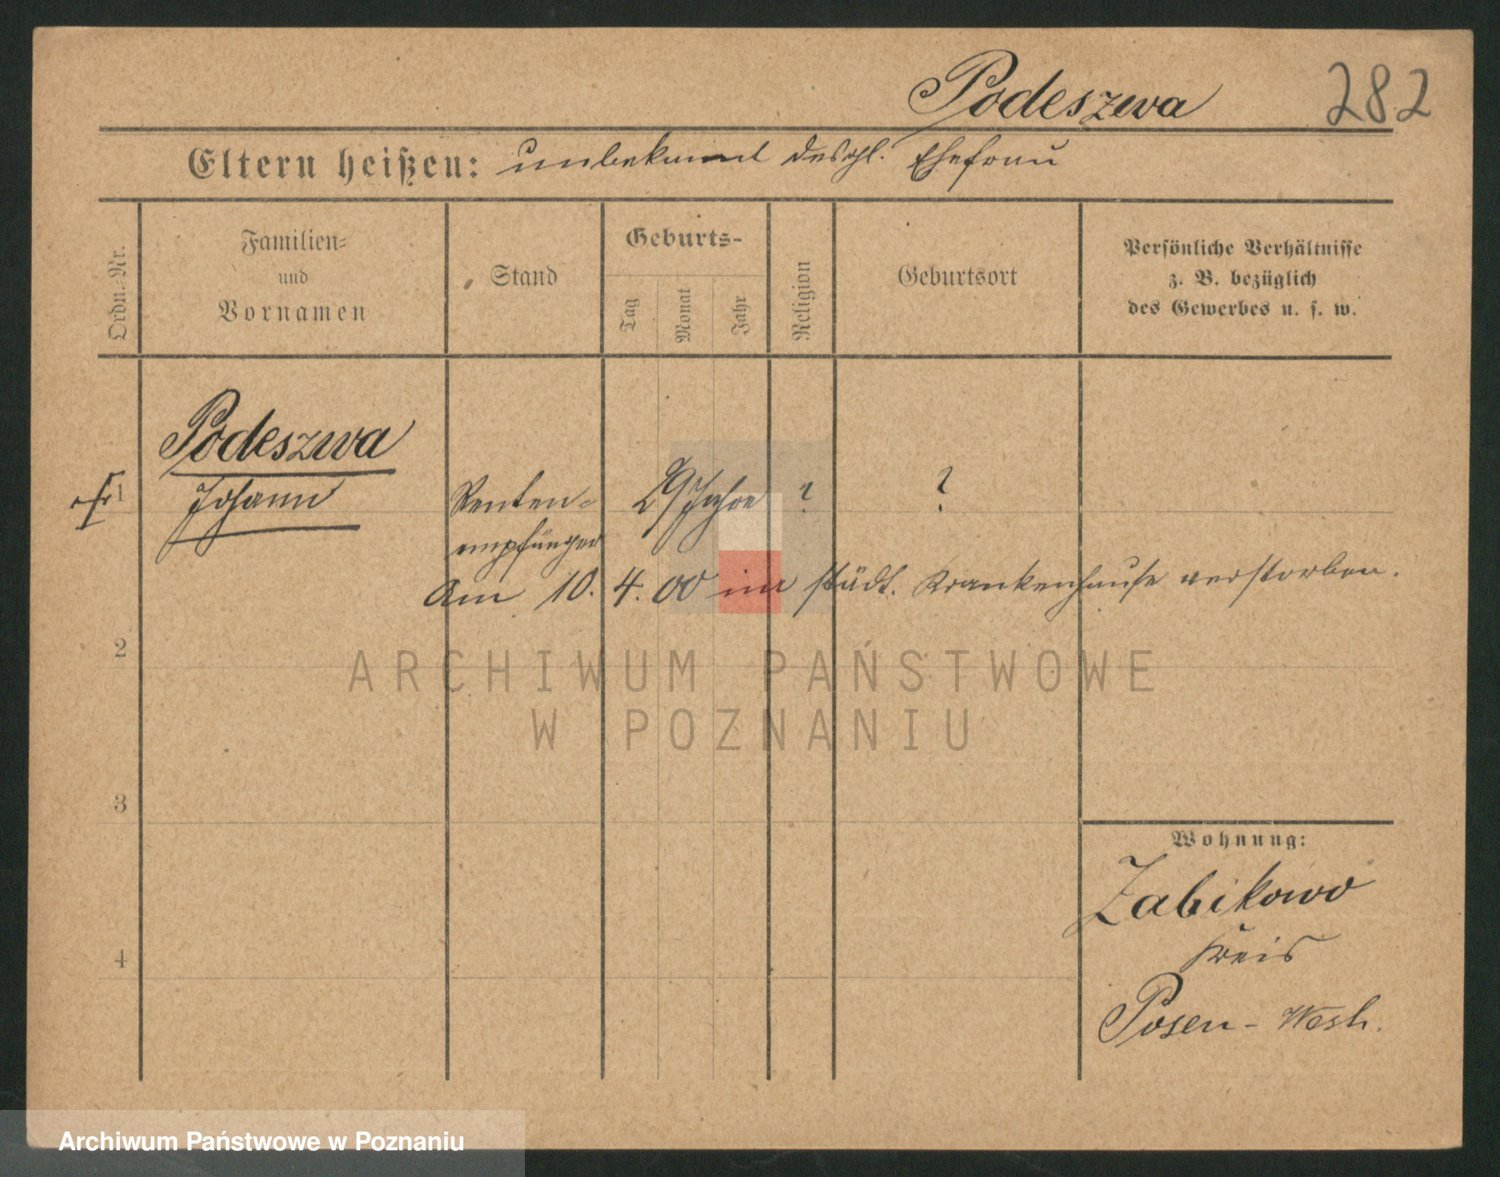 Podeszwa 282
Eltern heißen: unbekannt desgl. Ehefrau
Ordn.-Nr.
Familien-
und
Vornamen
Stand
Geburts-
Tag
Monat
Jahr
Religion
Geburtsort
Persönliche Verhältnisse
z. B. bezüglich
des Gewerbes u. s. w.
Podeszwa
1 Johann Renten- 29 Jahre ? ?
empfänger
Am 10. 4. 00 im städt. Krankenhause verstorben.
2
ARCHIWUM PAŃSTWOWE
W POZNANIU
3
Wohnung:
Zabikowo
4
Kreis
Posen - West.
Archiwum Państwowe w Poznaniu